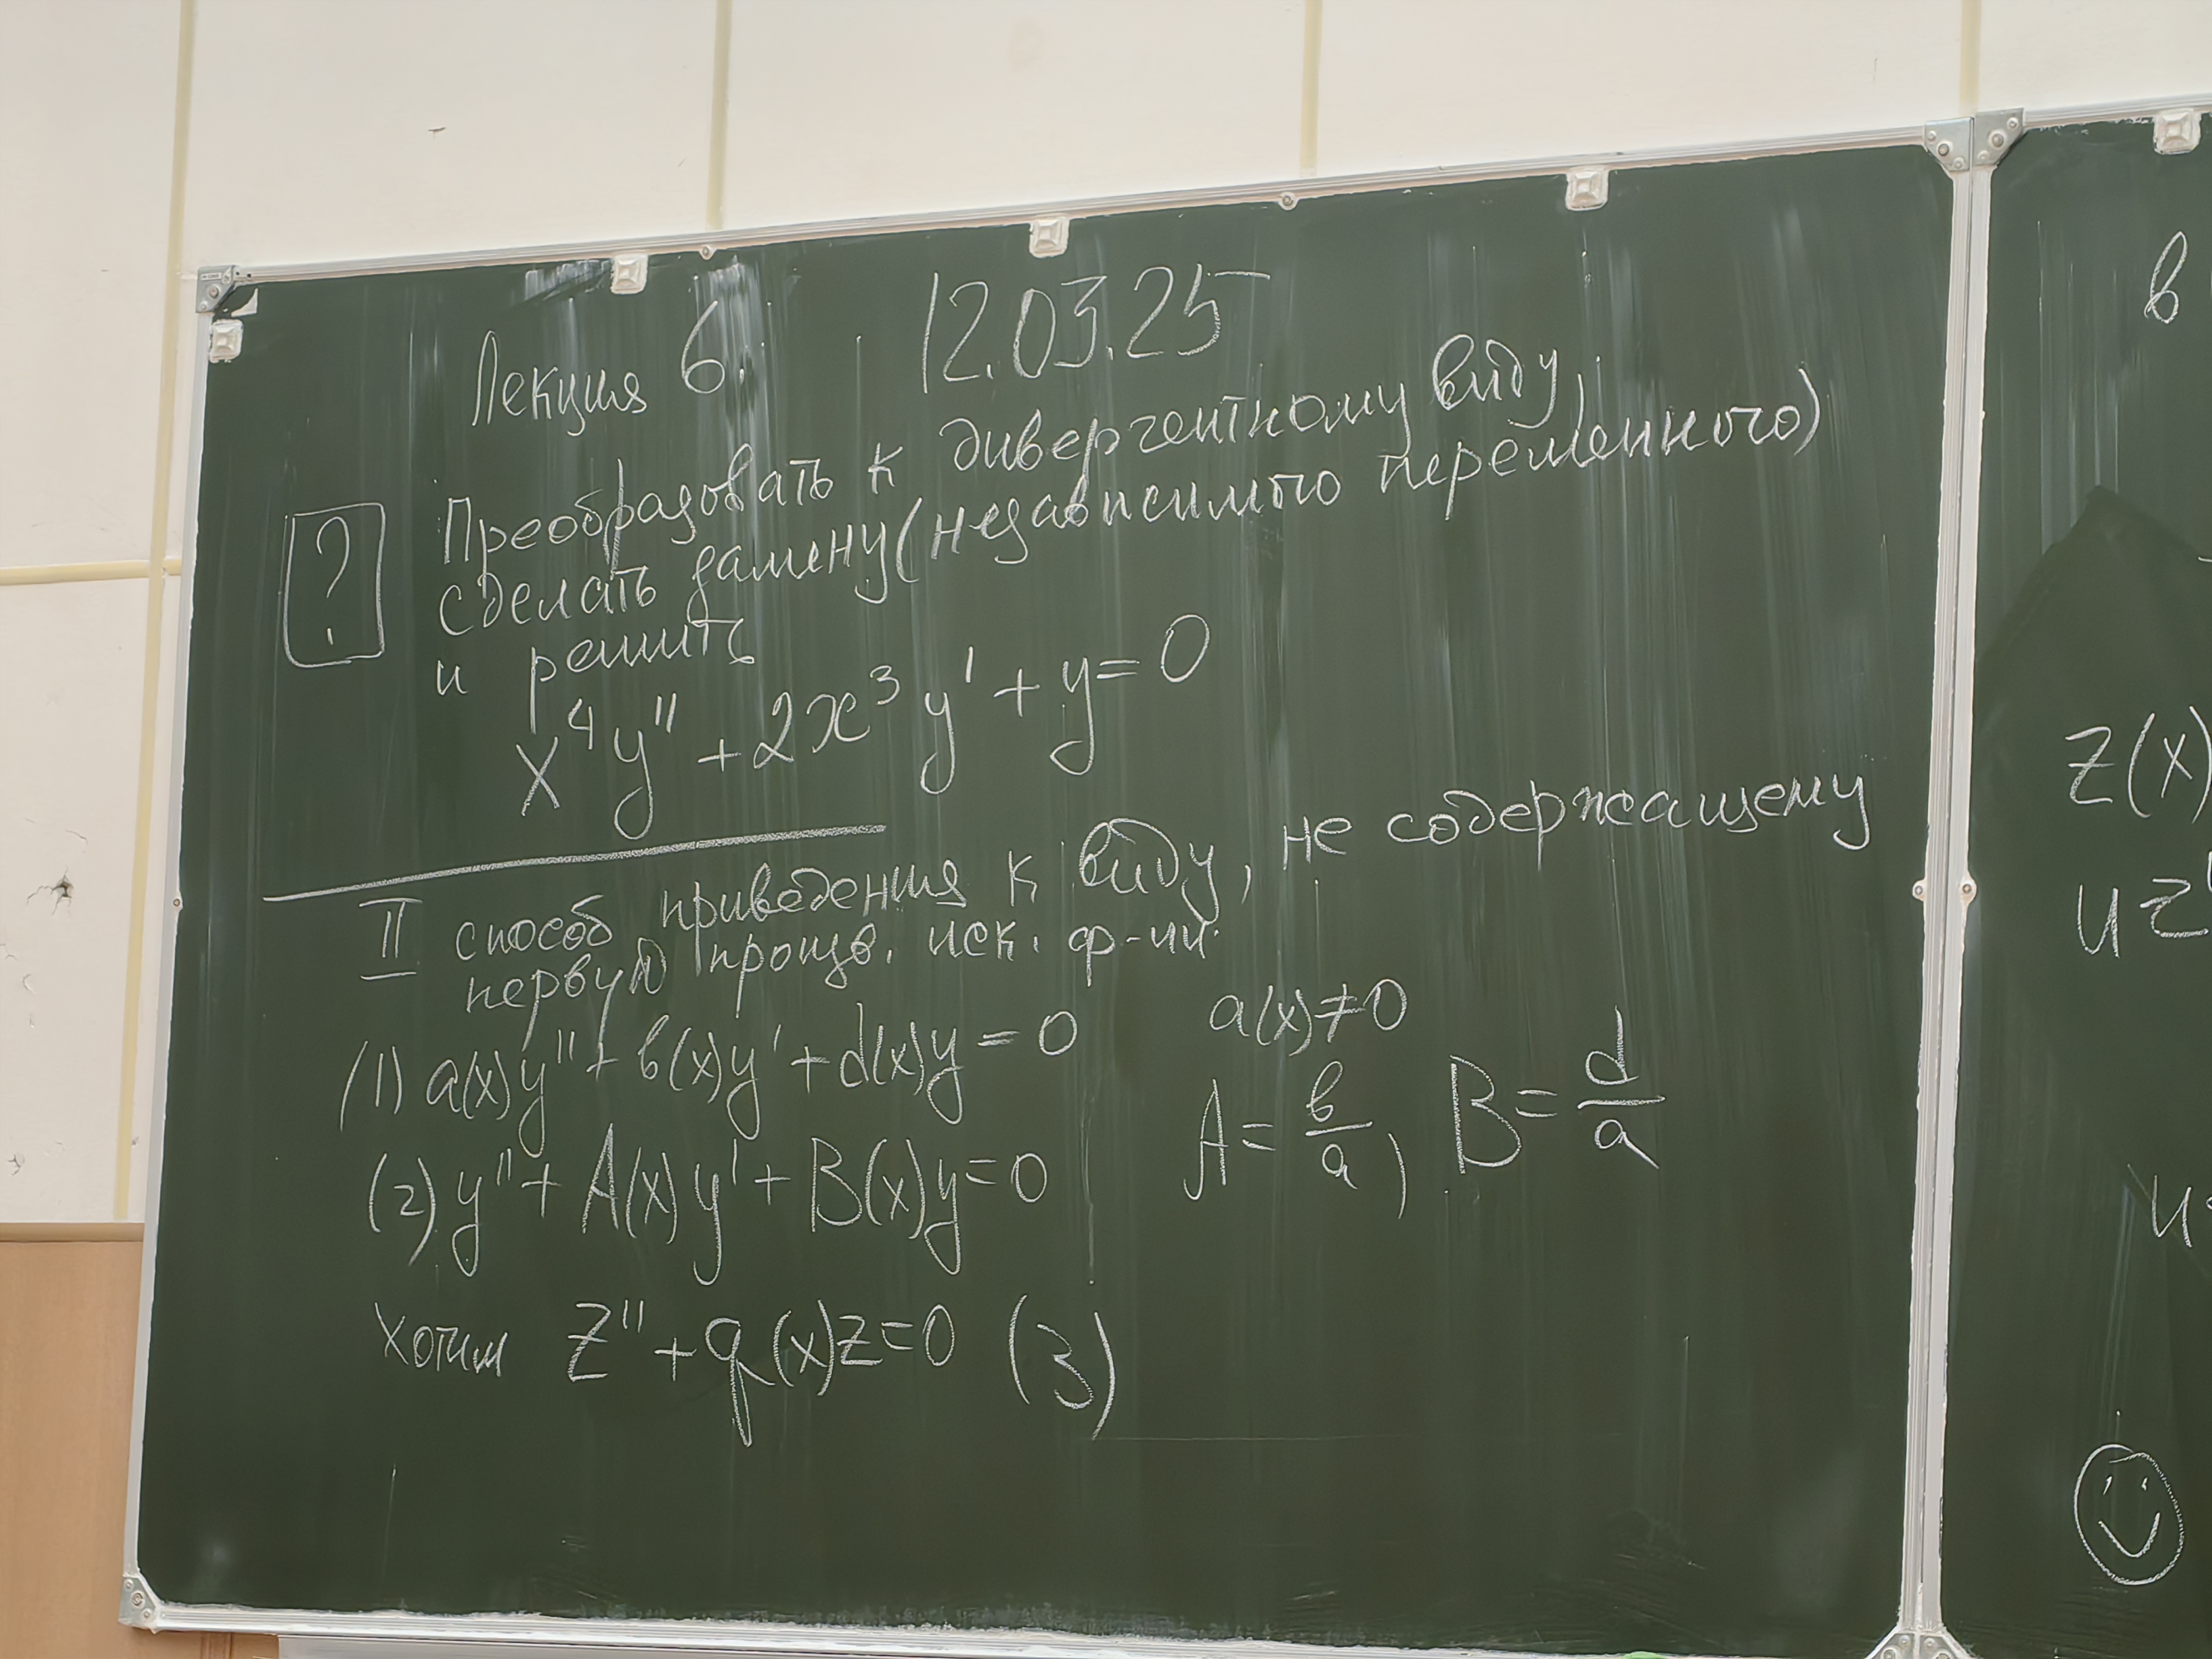 Лекция 6. 12.03.25
? Преобразовать к дивергентному виду,
сделать замену (независимого переменного)
и решить
x⁴y'' + 2x³y' + y = 0
II способ приведения к виду, не содержащему
первую произв. иск. ф-ии.
(1) a(x)y'' + b(x)y' + d(x)y = 0 a(x) ≠ 0
(2) y'' + A(x)y' + B(x)y = 0 A = b/a, B = d/a
Хотим z'' + q(x)z = 0 (3)
в
z(x)